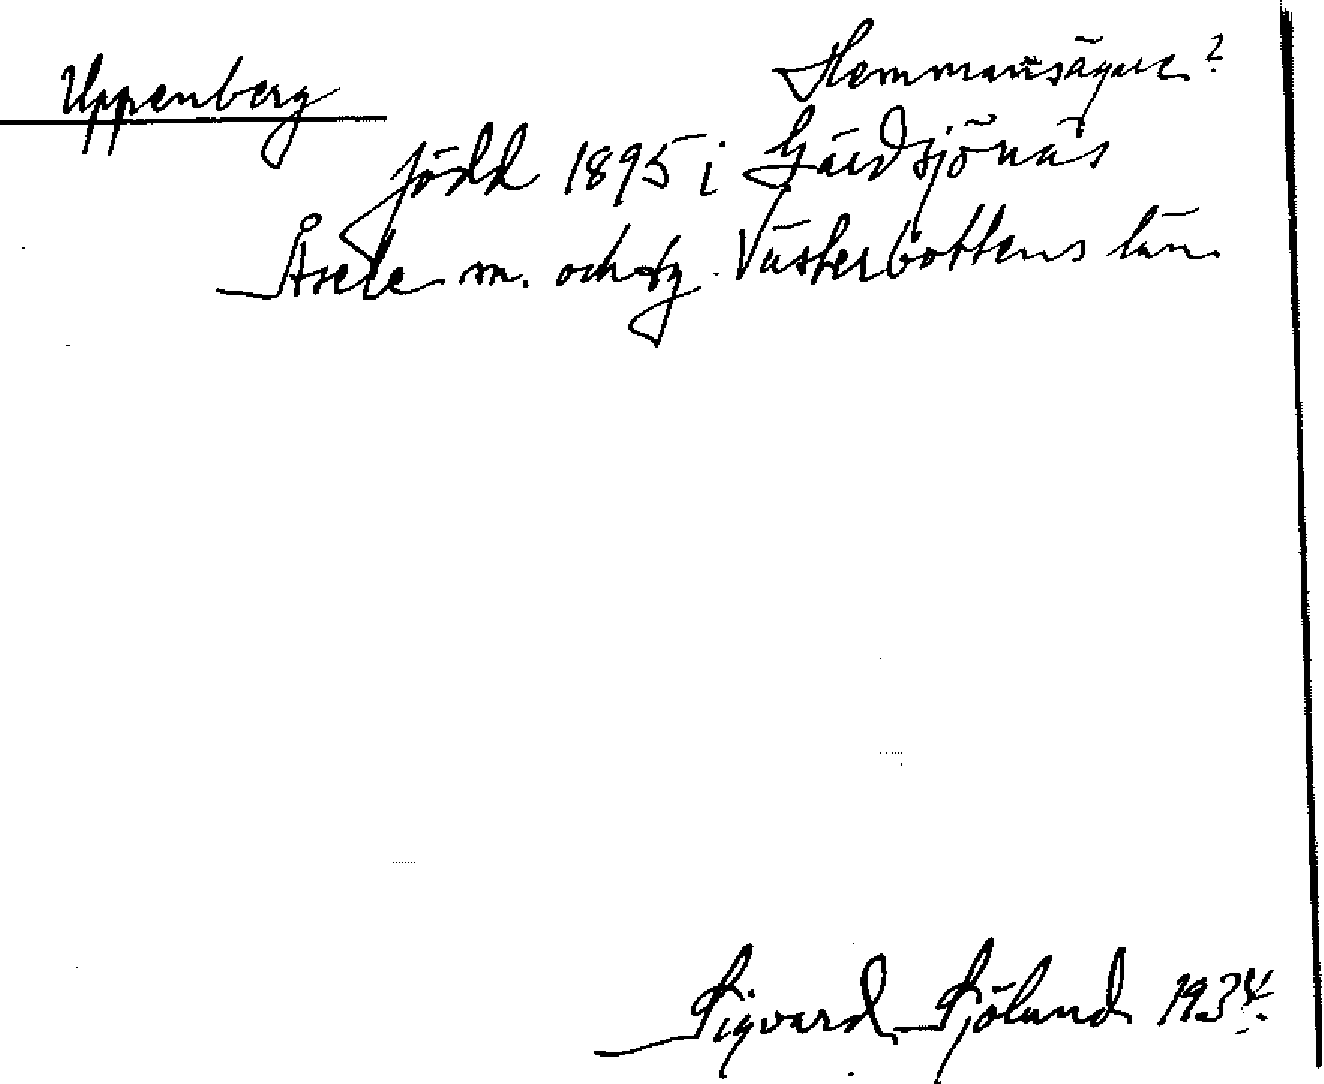 Uppenberg
Hemmansägare?
född 1895 i Gärdsjönäs
Åsele sn. och sg. Västerbottens län.
Sigvard Sjölund 1934.